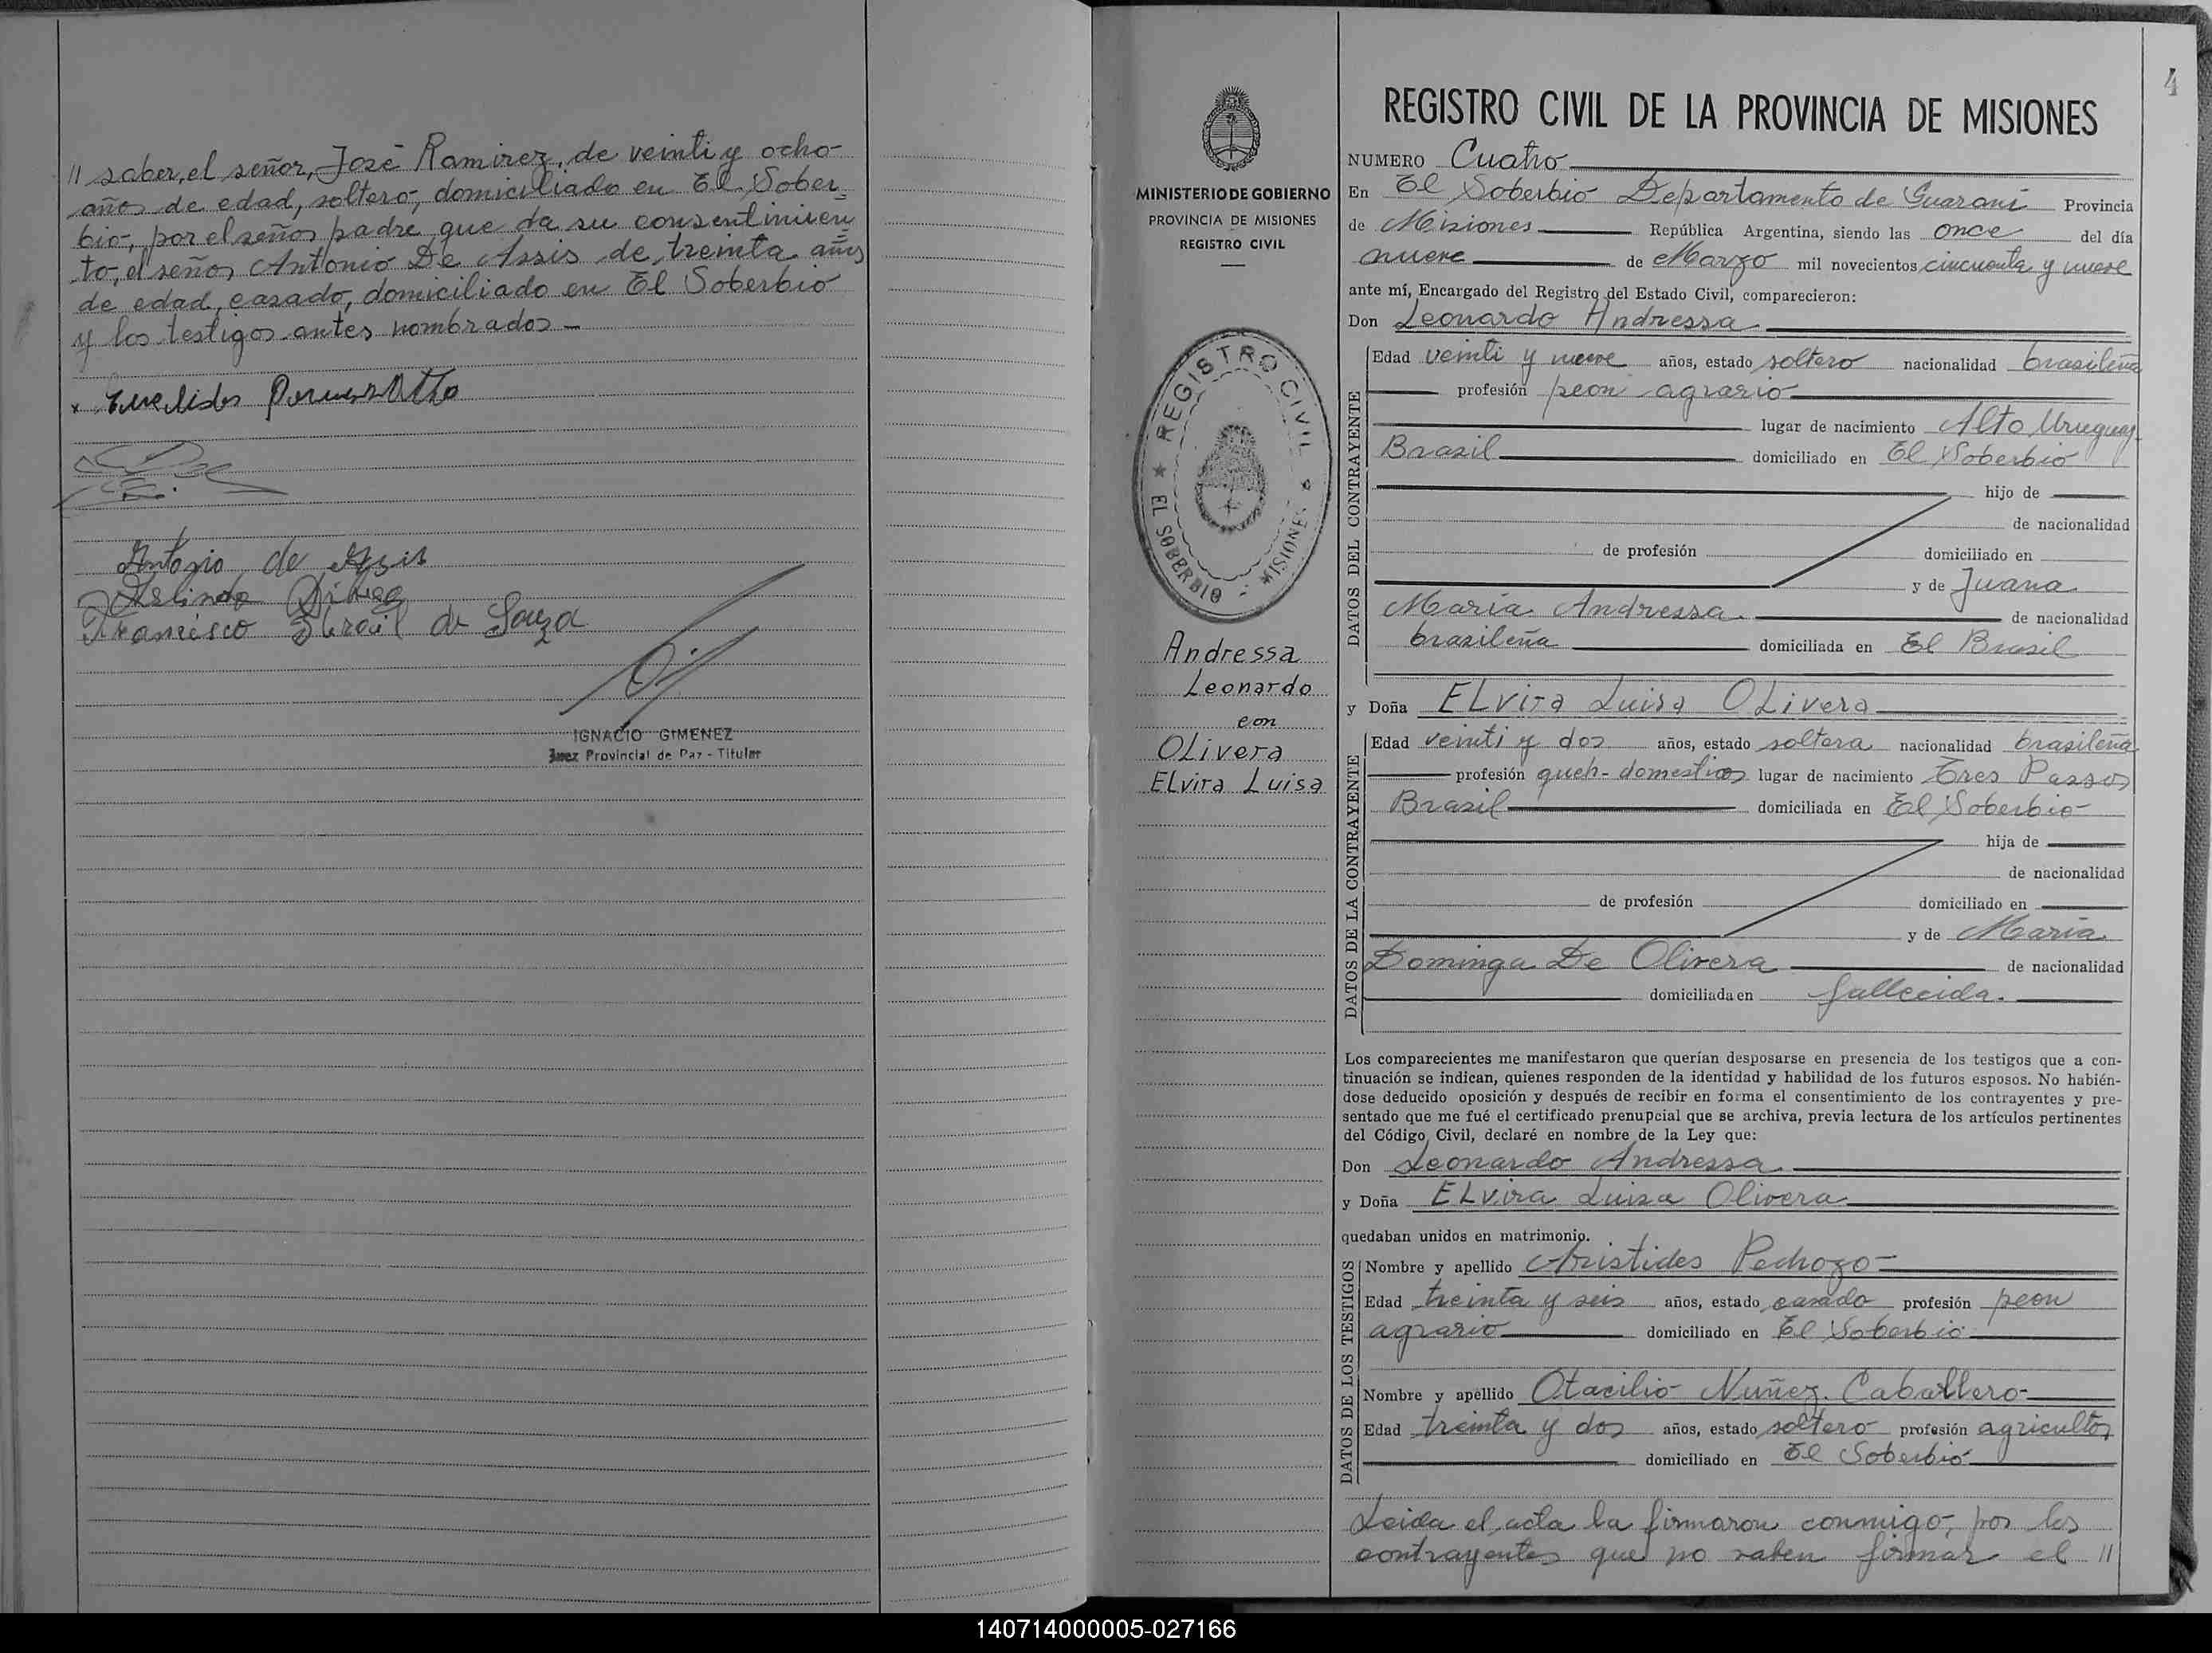 // saber, el señor, José Ramirez, de veinti y ocho
años de edad, soltero, domiciliado en El Sober=
bio, por el señor padre que da su consentimien
to, el señor Antonio De Assis de treinta años
de edad, casado, domiciliado en El Soberbio
y los testigos antes nombrados -
x
Antonio de Asis
Arlindo
Francisco de Souza
IGNACIO GIMENEZ
Juez Provincial de Paz - Titular
MINISTERIO DE GOBIERNO
PROVINCIA DE MISIONES
REGISTRO CIVIL
REGISTRO CIVIL
EL SOBERBIO - MISIONES
Andressa
Leonardo
con
OLivera
ELvira Luisa
4
REGISTRO CIVIL DE LA PROVINCIA DE MISIONES
NUMERO Cuatro
En El Soberbio Departamento de Guarani Provincia
de Misiones República Argentina, siendo las once del día
nueve de Marzo mil novecientos cincuenta y nueve
ante mí, Encargado del Registro del Estado Civil, comparecieron:
Don Leonardo Andressa
DATOS DEL CONTRAYENTE
Edad veinti y nueve años, estado soltero nacionalidad brasileña
profesión peon agrario
lugar de nacimiento Alto Uruguay
Brasil domiciliado en El Soberbio
hijo de
de nacionalidad
de profesión domiciliado en
y de Juana
Maria Andressa de nacionalidad
brasileña domiciliada en El Brasil
y Doña ELvira Luisa OLivera
DATOS DE LA CONTRAYENTE
Edad veinti y dos años, estado soltera nacionalidad brasileña
profesión queh- domesticos lugar de nacimiento Tres Passos
Brasil domiciliada en El Soberbio
hija de
de nacionalidad
de profesión domiciliado en
y de Maria
Dominga De Olivera de nacionalidad
domiciliada en fallecida.
Los comparecientes me manifestaron que querían desposarse en presencia de los testigos que a con-
tinuación se indican, quienes responden de la identidad y habilidad de los futuros esposos. No habién-
dose deducido oposición y después de recibir en forma el consentimiento de los contrayentes y pre-
sentado que me fué el certificado prenupcial que se archiva, previa lectura de los artículos pertinentes
del Código Civil, declaré en nombre de la Ley que:
Don Leonardo Andressa
y Doña ELvira Luisa Olivera
quedaban unidos en matrimonio.
DATOS DE LOS TESTIGOS
Nombre y apellido Aristides Pedrozo
Edad treinta y seis años, estado casado profesión peon
agrario domiciliado en El Soberbio
Nombre y apellido Otacilio Nuñez Caballero
Edad treinta y dos años, estado soltero profesión agricultor
domiciliado en El Soberbio
Leida el acta la firmaron conmigo, por los
contrayentes que no saben firmar el //
140714000005-027166